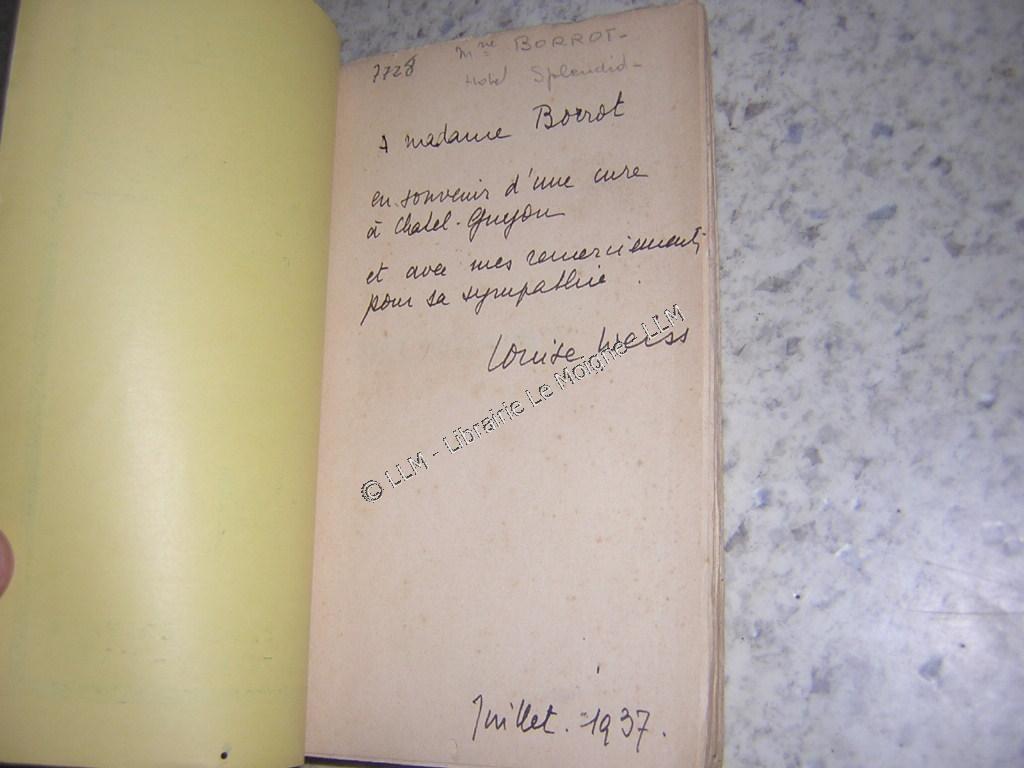 7728
Mme BORROT-
Hotel Splendid-
A madame Borrot
en souvenir d'une cure
à Chatel-Guyon
et avec mes remerciements
pour sa sympathie.
Louise Weiss
© LLM - Librairie Le Moigne - LLM
Juillet. 1937.